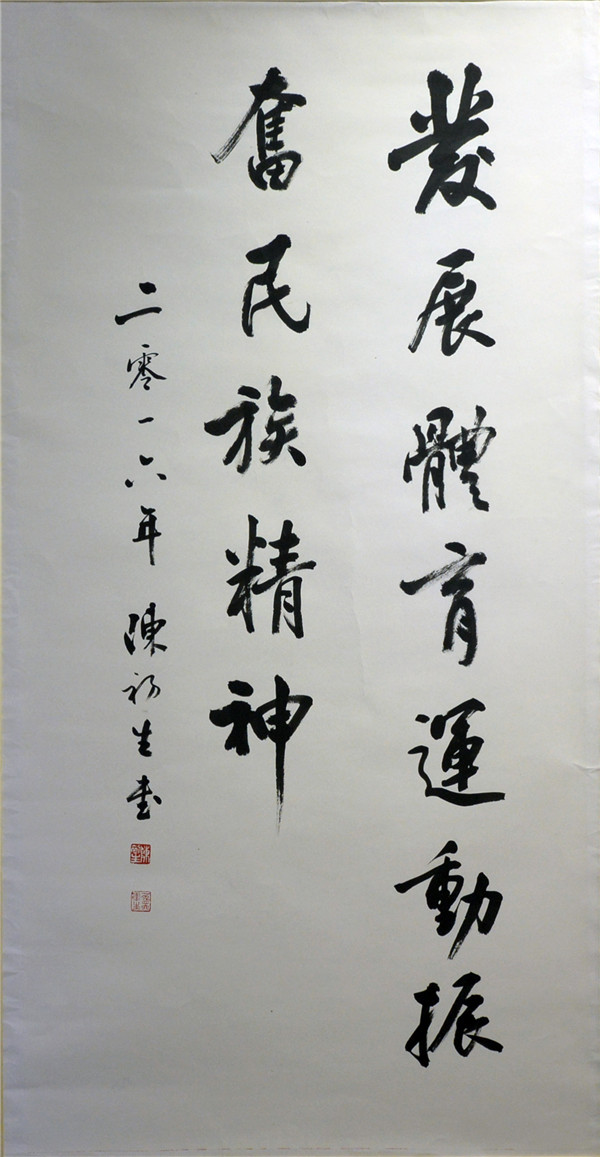 發展體育運動振
奮民族精神
二零一六年 陳初生書